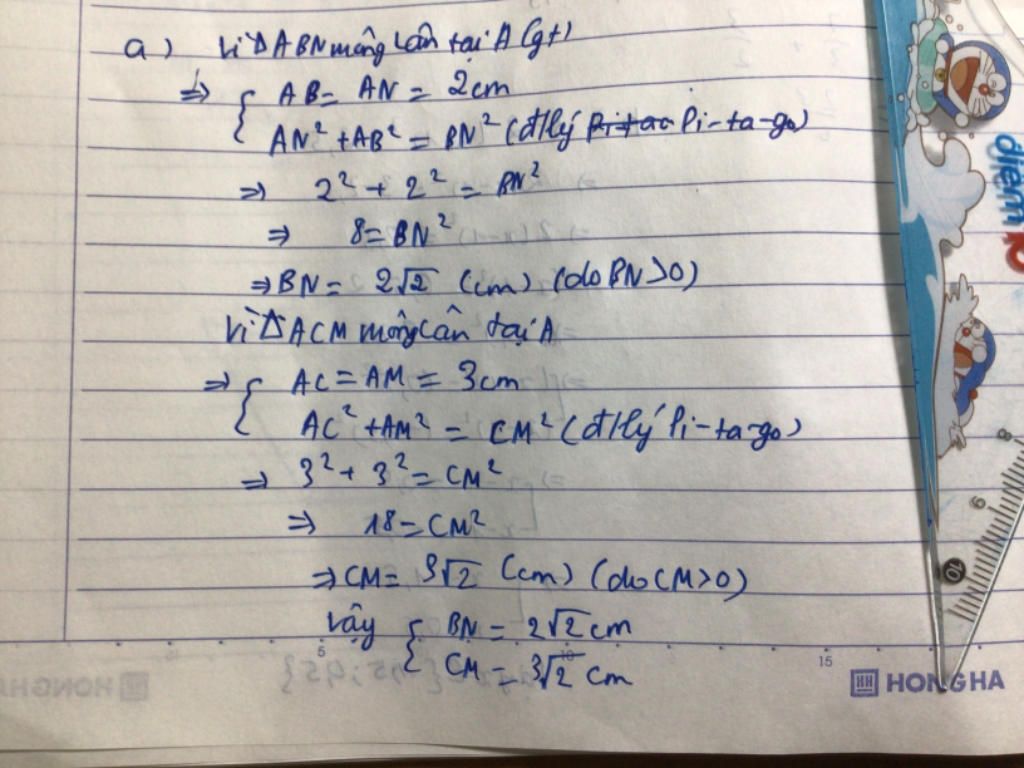 a) Vì Δ ABN vuông cân tại A (gt)
⇒ { AB = AN = 2cm
AN² + AB² = BN² (đ/lý Pi-ta-go)
⇒ 2² + 2² = BN²
⇒ 8 = BN²
⇒ BN = 2√2 (cm) (do BN > 0)
Vì Δ ACM vuông cân tại A
⇒ { AC = AM = 3cm
AC² + AM² = CM² (đ/lý Pi-ta-go)
⇒ 3² + 3² = CM²
⇒ 18 = CM²
⇒ CM = 3√2 (cm) (do CM > 0)
Vậy { BN = 2√2 cm
CM = 3√2 cm
5 10 15
HONG HA
điểm 10
8
9
10